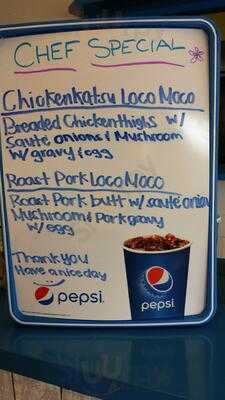 CHEF SPECIAL
Chickenkatsu Loco Moco
Breaded Chickenthighs w/
Saute onions & Mushroom
w/ gravy & egg
Roast Pork Loco Moco
Roast Pork butt w/ saute onion
Mushroom & Pork gravy
w/ egg
Thank you
Have a nice day
pepsi
pepsi